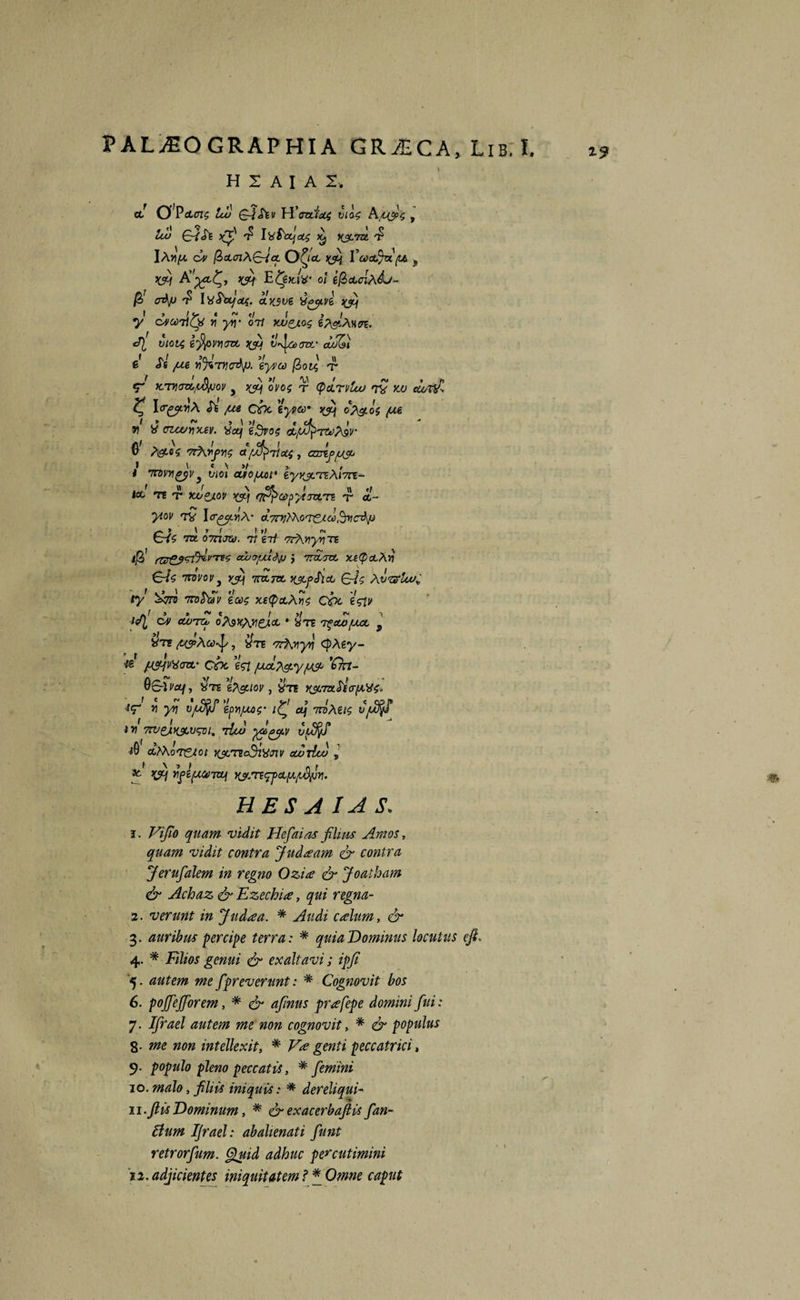 PALÆOGRAPHIA GRÆCA, LIB. I. 29
Η Σ Α Ι Α Σ.
α΄ Ὅρασις ἣν εἶδεν Ἡσαΐας υἱὸς Ἀμὼς,
ἣν εἶδε κατὰ τῆς Ἰουδαίας καὶ κατὰ τῆς
Ἰλὴμ ἐν βασιλεία Ὀζία καὶ Ἰωάθαμ,
καὶ Ἄχαζ, καὶ Ἐζεκίου· οἳ ἐβασίλευ-
β΄ σαν τῆς Ἰουδαίας. ἄκουε οὐρανὲ καὶ
γ΄ ἐνωτίζου ἡ γῆ· ὅτι κύριος ἐλάλησε.
δ΄ υἱοὺς ἐγέννησα καὶ ὕψωσα· αὐτοὶ
ε΄ δέ με ἠθέτησαν. ἔγνω βοῦς τὸν
ϛ΄ κτησάμενον, καὶ ὄνος τὴν φάτνην τοῦ κυ αὐτοῦ.
ζ΄ Ἰσραὴλ δέ με οὐκ ἔγνω· καὶ ὁ λαός με
η΄ οὐ συνῆκεν. οὐαὶ ἔθνος ἁμαρτωλόν·
θ΄ λαὸς πλήρης ἁμαρτίας, σπέρμα
ι΄ πονηρὸν, υἱοὶ ἄνομοι· ἐγκατελίπε-
ια΄ τε τὸν κύριον καὶ παρωργίσατε τὸν ἅ-
γιον τοῦ Ἰσραὴλ· ἀπηλλοτριώθησαν
εἰς τὰ ὀπίσω. τί ἔτι πληγῆτε
ιβ΄ προσθέντες ἀνομίαν; πᾶσα κεφαλὴ
εἰς πόνον, καὶ πᾶσα καρδία εἰς λύπην.
ιγ΄ ἀπὸ ποδῶν ἕως κεφαλῆς οὐκ ἔστιν
ιδ΄ ἐν αὐτῷ ὁλοκληρία· οὔτε τραῦμα,
οὔτε μώλωψ, οὔτε πληγὴ φλεγ-
ιε΄ μαίνουσα· οὐκ ἔστι μάλαγμα ἐπι-
θεῖναι, οὔτε ἔλαιον, οὔτε καταδέσμους.
ιϛ΄ ἡ γῆ ὑμῶν ἔρημος· ιζ΄ αἱ πόλεις ὑμῶν
ιη΄ πυρίκαυστοι. τὴν χώραν ὑμῶν
ιθ΄ ἀλλότριοι κατεσθίουσιν αὐτὴν,
κ΄ καὶ ἠρέμωται κατεστραμμένη.
HESAIAS.
1. Visio quam vidit Hesaias filius Amos,
quam vidit contra Judæam & contra
Jerusalem in regno Oziæ & Joatham
& Achaz & Ezechiæ, qui regna-
2. verunt in Judæa. * Audi cælum, &
3. auribus percipe terra: * quia Dominus locutus est.
4. * Filios genui & exaltavi; ipsi
5. autem me spreverunt: * Cognovit bos
6. possessorem, * & asinus præsepe domini sui:
7. Israel autem me non cognovit, * & populus
8. me non intellexit, * Væ genti peccatrici,
9. populo pleno peccatis, * semini
10. malo, filiis iniquis: * dereliqui-
11. stis Dominum, * & exacerbastis san-
ctum Israel: abalienati sunt
retrorsum. Quid adhuc percutimini
12. adjicientes iniquitatem? * Omne caput